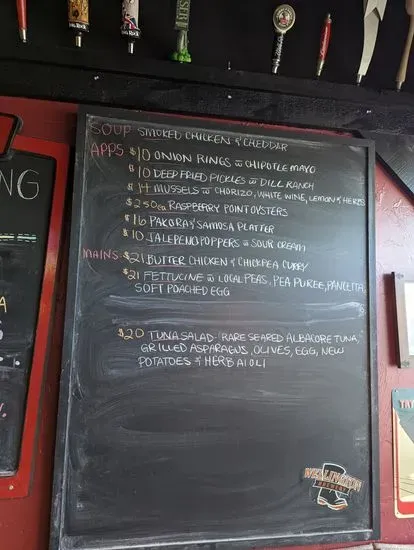 SOUP SMOKED CHICKEN & CHEDDAR
APPS $10 ONION RINGS W CHIPOTLE MAYO
$10 DEEP FRIED PICKLES W DILL RANCH
$14 MUSSELS W CHORIZO, WHITE WINE, LEMON & HERBS
$2.50ea RASPBERRY POINT OYSTERS
$16 PAKORA & SAMOSA PLATTER
$10 JALEPENO POPPERS W SOUR CREAM
MAINS $21 BUTTER CHICKEN & CHICKPEA CURRY
$21 FETTUCINE W LOCAL PEAS, PEA PUREE, PANCETTA,
SOFT POACHED EGG
$20 TUNA SALAD - RARE SEARED ALBACORE TUNA,
GRILLED ASPARAGUS, OLIVES, EGG, NEW
POTATOES & HERB AIOLI
NG
A